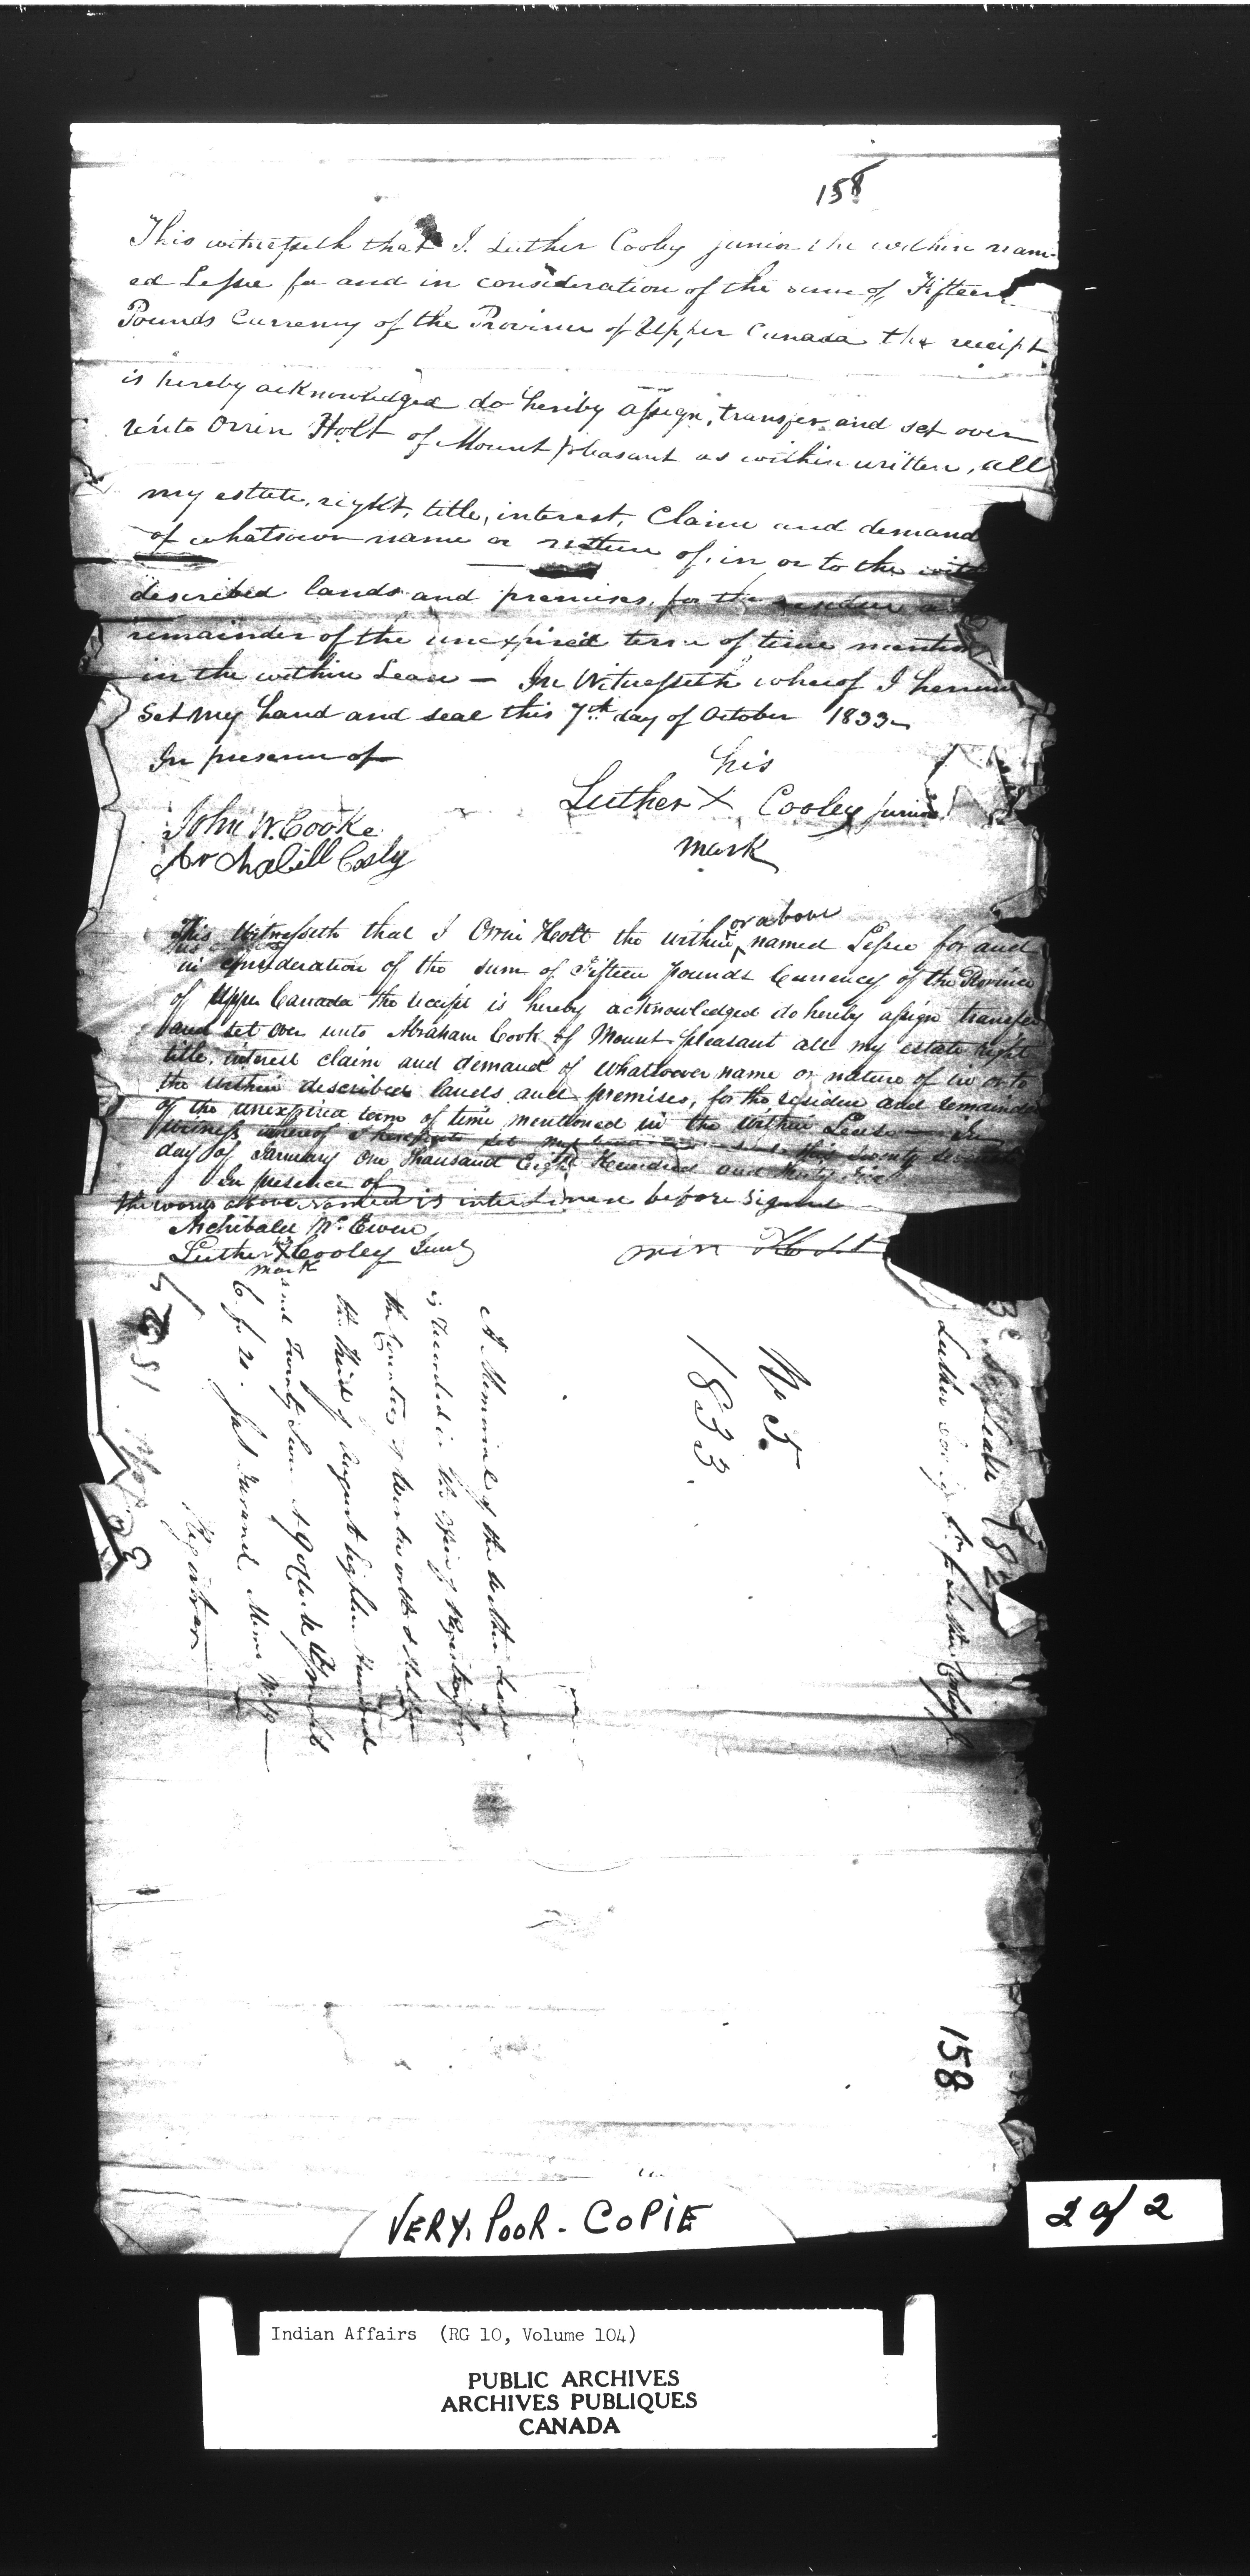 158
This witnesseth that I. Luther Cooley junior the within nam-
ed Lessee for and in consideration of the sum of Fifteen
Pounds Currency of the Province of Upper Canada the receipt
is hereby acknowledged do hereby assign, transfer and set over
unto Orrin Holt of Mount pleasant as within written, all
my estate, right, title, interest, Claim and demand
of whatsoever name or nature of, in, or to the
described lands and premises, for the residue
remainder of the unexpired term of time
in the within Lease — In Witnesseth whereof I
Set my hand and seal this 7th day of October 1833
In presence of
his
Luther X Cooley junior
mark
John W. Cooke
This Witnesseth that I Orrin Holt the within or above named Lessee for and
in consideration of the sum of Fifteen pounds Currency of the Province
of Upper Canada the receipt is hereby acknowledged do hereby assign transfer
and set over unto Abraham Cook of Mount pleasant all my estate right
title, interest claim and demand of whatsoever name or nature of in or to
the within described lands and premises, for the residue and remainder
of the unexpired term of time mentioned in the within Lease — In
witness whereof I set my this twenty
day of January One thousand Eight Hundred and thirty
In presence of
the words above named is interlined before signed
Archibald McEwen
Luther X Cooley Junr
mark
orrin Holt
A Memorial of the within Lease
is Recorded in the Office of Registry for
the Counties of
the third of August Eighteen Hundred
and Twenty Seven
Registrar
No 5.
1833.
Luther
158
VERY. POOR - COPIE
2 of 2
Indian Affairs (RG 10, Volume 104)
PUBLIC ARCHIVES
ARCHIVES PUBLIQUES
CANADA